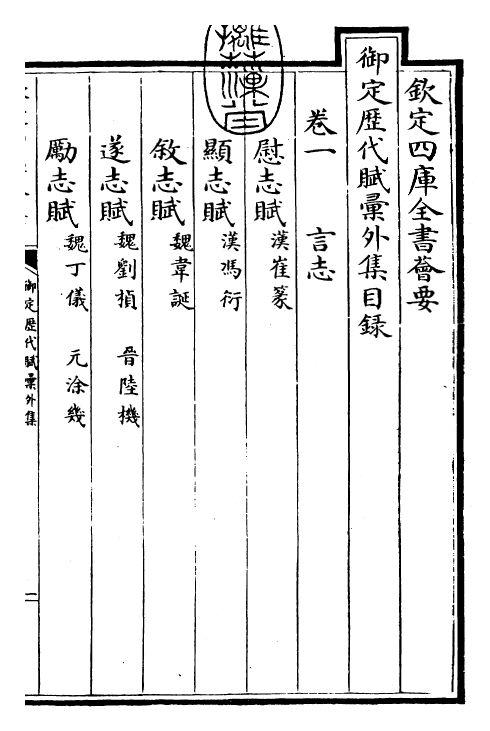 欽定四庫全書薈要
御定歴代賦彙外集目録
卷一　言志
慰志賦漢崔篆
顯志賦漢馮衍
敘志賦魏韋誕
遂志賦魏劉楨　晉陸機
勵志賦魏丁儀　元涂幾
御定歴代賦彙外集
一